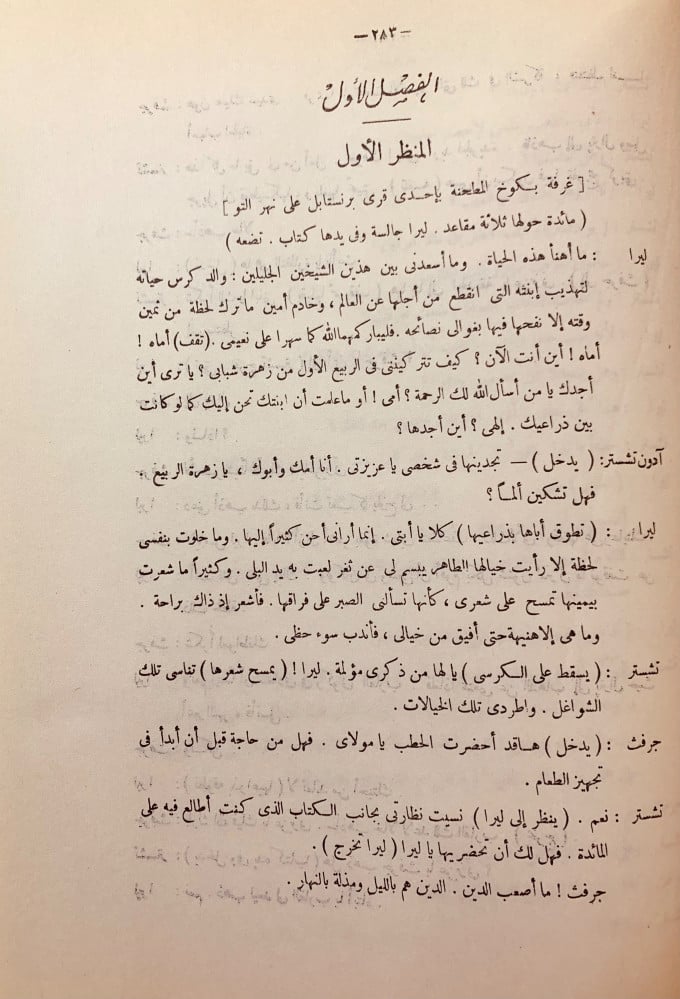 — ٢٨٣ —
الفصل الأول
المنظر الأول
[ غرفة بكوخ المطحنة بإحدى قرى برنستابل على نهر التو ]
( مائدة حولها ثلاثة مقاعد . ليرا جالسة وفى يدها كتاب . تضعه )
ليرا : ما أهنأ هذه الحياة . وما أسعدنى بين هذين الشيخين الجليلين : والد كرس حياته
لتهذيب إبنته التى انقطع من أجلها عن العالم ، وخادم أمين ما ترك لحظة من ثمين
وقته إلا نفحها فيها بغوالى نصائحه . فليباركهما الله كما سهرا على نعيمى . ( تقف ) أماه !
أماه ! أين أنت الآن ؟ كيف تتركينى فى الربيع الأول من زهرة شبابى ؟ يا ترى أين
أجدك يا من أسأل الله لك الرحمة ؟ أمى ! أو ما علمت أن ابنتك تحن إليك كما لو كانت
بين ذراعيك . إلهى ؟ أين أجدها ؟
آدون تشستر : ( يدخل ) — تجدينها فى شخصى يا عزيزتى . أنا أمك وأبوك ، يا زهرة الربيع .
فهل تشكين ألمـاً ؟
ليرا : ( تطوق أباها بذراعيها ) كلا يا أبتى . إنما أرانى أحن كثيراً إليها . وما خلوت بنفسى
لحظة إلا رأيت خيالها الطاهر يبسم لى عن ثغر لعبت به يد البلى . وكثيراً ما شعرت
بيمينها تمسح على شعرى ، كأنها تسألنى الصبر على فراقها . فأشعر إذ ذاك براحة .
وما هى إلا هنيهة حتى أفيق من خيالى ، فأندب سوء حظى .
تشستر : ( يسقط على الكرسى ) يا لها من ذكرى مؤلمة . ليرا ! ( يمسح شعرها ) تناسى تلك
الشواغل . واطردى تلك الخيالات .
جرفث : ( يدخل ) هاقد أحضرت الحطب يا مولاى . فهل من حاجة قبل أن أبدأ فى
تجهيز الطعام .
تشستر : نعم . ( ينظر إلى ليرا ) نسيت نظارتى بجانب الكتاب الذى كنت أطالع فيه على
المائدة . فهل لك أن تحضريها يا ليرا ( ليرا تخرج ) .
جرفث ! ما أصعب الدين . الدين هم بالليل ومذلة بالنهار .